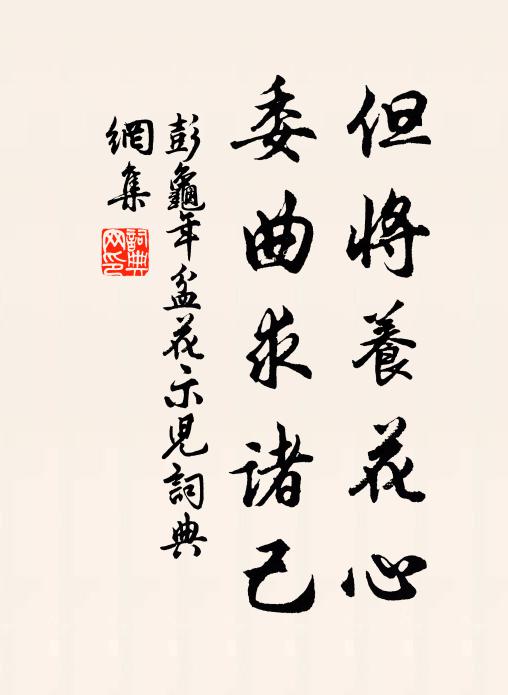 但將養花心
委曲求諸己
彭龜年盆花示兒詞典
網集
詞典
网印